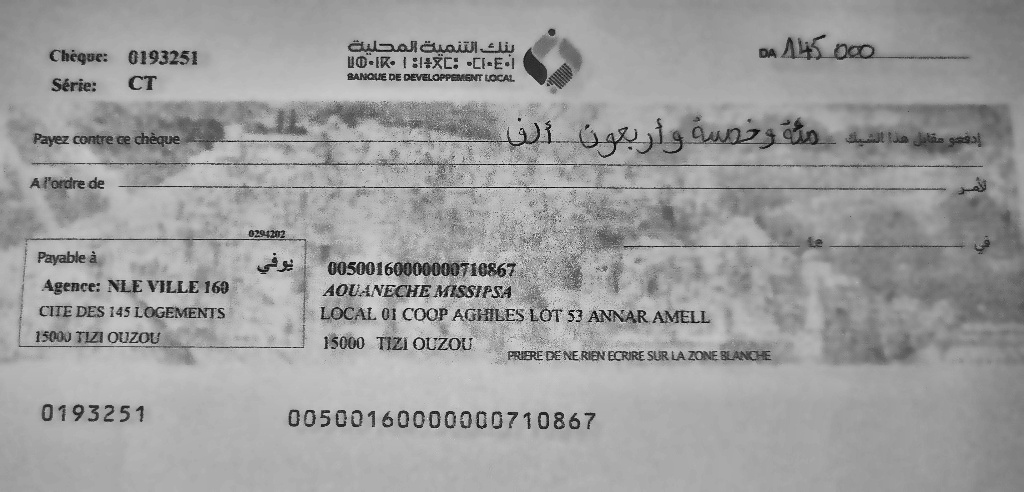 Chèque: 0193251
Série: CT
بنك التنمية المحلية
BANQUE DE DEVELOPPEMENT LOCAL
DA 145 000
Payez contre ce chèque مئة وخمسة وأربعون ألف إدفعو مقابل هذا الشيك
A l'ordre de لأمر
Le في
0294202
Payable à يوفي
Agence: NLE VILLE 160
CITE DES 145 LOGEMENTS
15000 TIZI OUZOU
00500160000000710867
AOUANECHE MISSIPSA
LOCAL 01 COOP AGHILES LOT 53 ANNAR AMELL
15000 TIZI OUZOU
PRIERE DE NE RIEN ECRIRE SUR LA ZONE BLANCHE
0193251 00500160000000710867